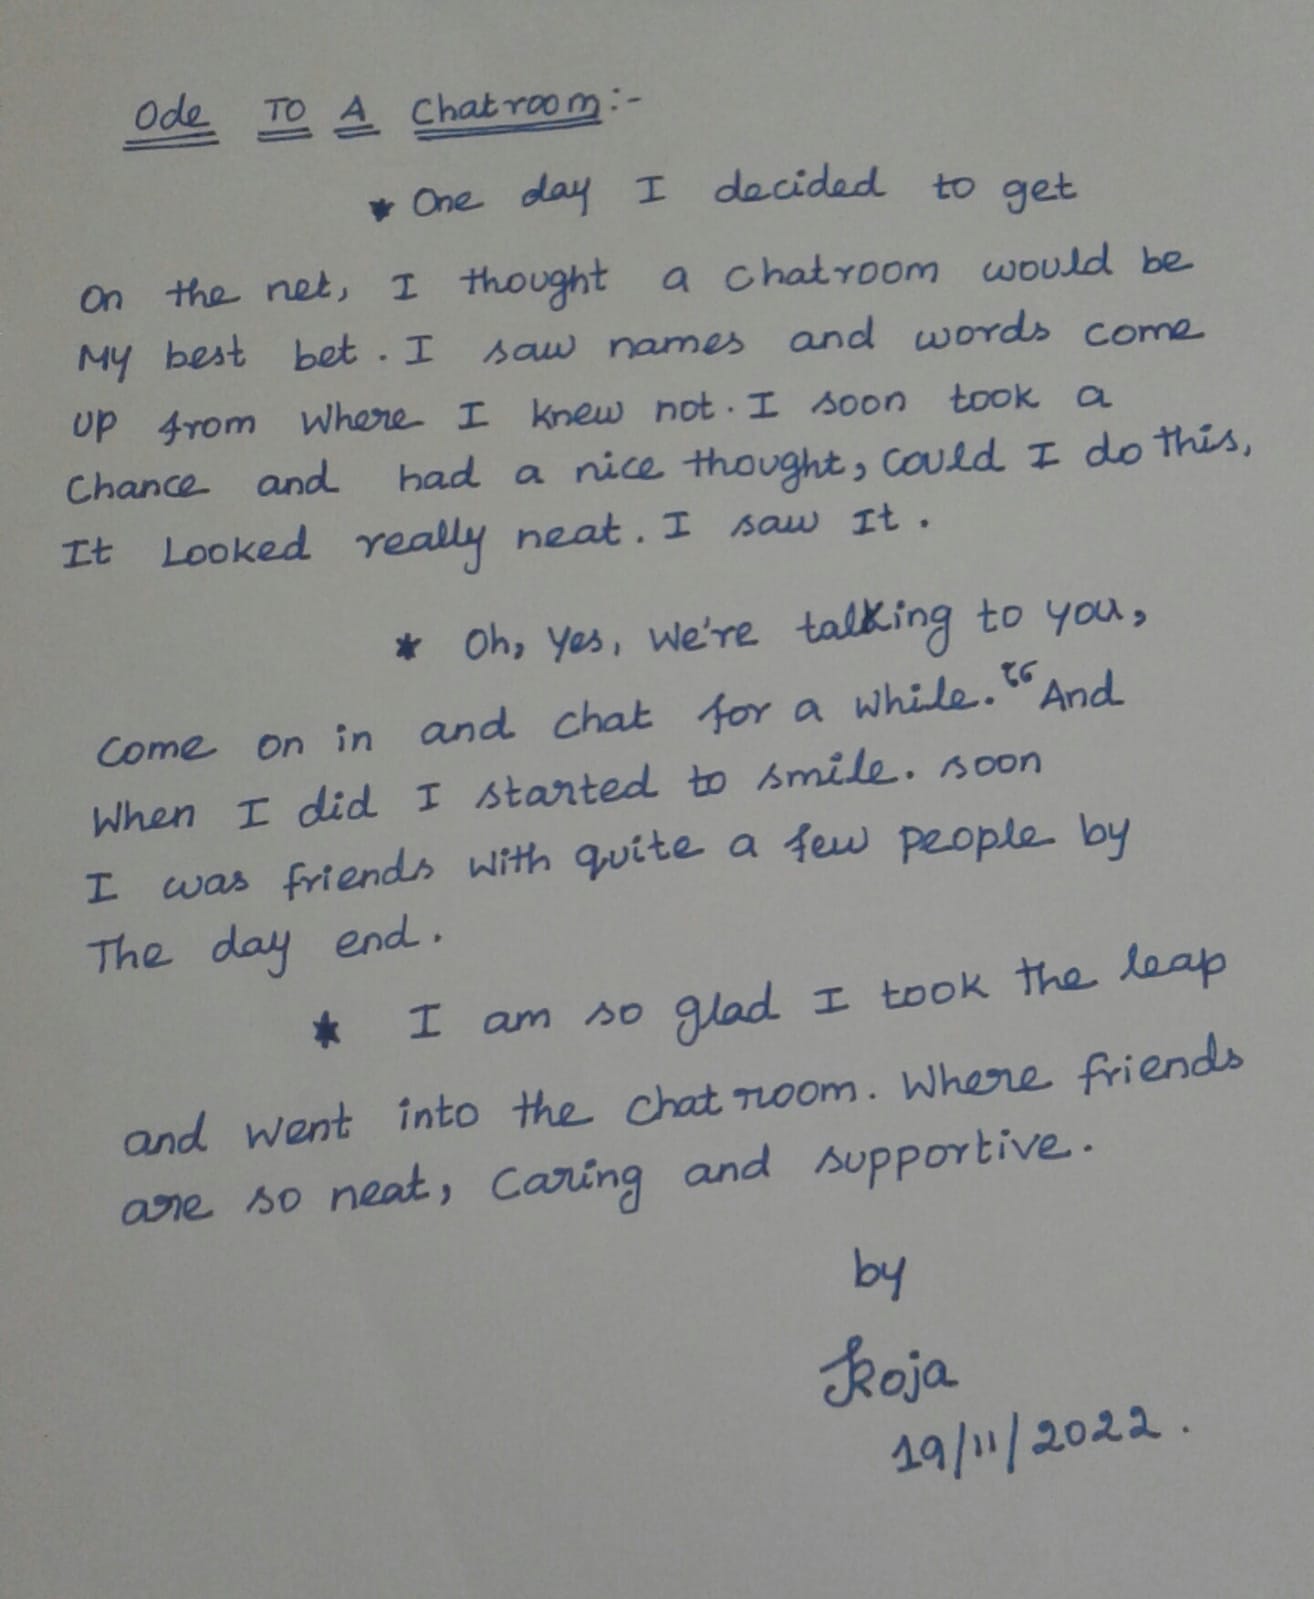 Ode TO A Chatroom:-
* One day I decided to get
On the net, I thought a chatroom would be
My best bet. I saw names and words come
UP from Where I knew not. I soon took a
Chance and had a nice thought, Could I do this,
It Looked really neat. I saw It.
* Oh, Yes, We're talking to you,
Come on in and chat for a while.“ And
When I did I started to smile. soon
I was friends with quite a few people by
The day end.
* I am so glad I took the leap
and went into the chat room. Where friends
are so neat, Caring and supportive.
by
Roja
19/11/2022.